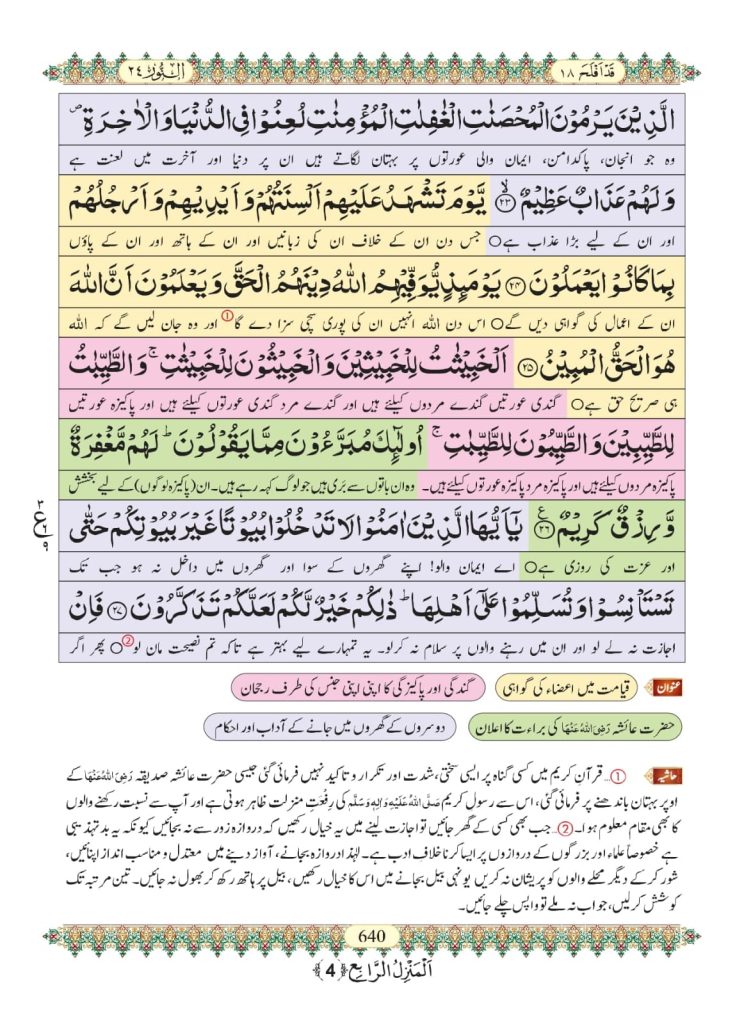 قَدْ اَفْلَحَ ١٨
اَلنُّوْر ٢٤
الَّذِيْنَ يَرْمُوْنَ الْمُحْصَنٰتِ الْغٰفِلٰتِ الْمُؤْمِنٰتِ لُعِنُوْا فِي الدُّنْيَا وَالْاٰخِرَةِ ۪
وہ جو انجان، پاکدامن، ایمان والی عورتوں پر بہتان لگاتے ہیں ان پر دنیا اور آخرت میں لعنت ہے
وَلَهُمْ عَذَابٌ عَظِيْمٌ ﴿٢٣﴾ يَّوْمَ تَشْهَدُ عَلَيْهِمْ اَلْسِنَتُهُمْ وَاَيْدِيْهِمْ وَاَرْجُلُهُمْ
اور ان کے لیے بڑا عذاب ہے○ جس دن ان کے خلاف ان کی زبانیں اور ان کے ہاتھ اور ان کے پاؤں
بِمَا كَانُوْا يَعْمَلُوْنَ ﴿٢٤﴾ يَوْمَىِٕذٍ يُّوَفِّيْهِمُ اللّٰهُ دِيْنَهُمُ الْحَقَّ وَيَعْلَمُوْنَ اَنَّ اللّٰهَ
ان کے اعمال کی گواہی دیں گے○ اس دن اللہ انہیں ان کی پوری سچی سزا دے گا① اور وہ جان لیں گے کہ اللہ
هُوَ الْحَقُّ الْمُبِيْنُ ﴿٢٥﴾ اَلْخَبِيْثٰتُ لِلْخَبِيْثِيْنَ وَالْخَبِيْثُوْنَ لِلْخَبِيْثٰتِ ۚ وَالطَّيِّبٰتُ
ہی صریح حق ہے○ گندی عورتیں گندے مردوں کیلئے ہیں اور گندے مرد گندی عورتوں کیلئے ہیں اور پاکیزہ عورتیں
لِلطَّيِّبِيْنَ وَالطَّيِّبُوْنَ لِلطَّيِّبٰتِ ۚ اُولٰٓىِٕكَ مُبَرَّءُوْنَ مِمَّا يَقُوْلُوْنَ ؕ لَهُمْ مَّغْفِرَةٌ
پاکیزہ مردوں کیلئے ہیں اور پاکیزہ مرد پاکیزہ عورتوں کیلئے ہیں۔ وہ ان باتوں سے بَری ہیں جو لوگ کہہ رہے ہیں۔ ان (پاکیزہ لوگوں) کے لیے بخشش
وَّرِزْقٌ كَرِيْمٌ ﴿٢٦﴾ يٰۤاَيُّهَا الَّذِيْنَ اٰمَنُوْا لَا تَدْخُلُوْا بُيُوْتًا غَيْرَ بُيُوْتِكُمْ حَتّٰى
اور عزت کی روزی ہے○ اے ایمان والو! اپنے گھروں کے سوا اور گھروں میں داخل نہ ہو جب تک
تَسْتَاْنِسُوْا وَتُسَلِّمُوْا عَلٰۤى اَهْلِهَا ؕ ذٰلِكُمْ خَيْرٌ لَّكُمْ لَعَلَّكُمْ تَذَكَّرُوْنَ ﴿٢٧﴾ فَاِنْ
اجازت نہ لے لو اور ان میں رہنے والوں پر سلام نہ کرلو۔ یہ تمہارے لیے بہتر ہے تاکہ تم نصیحت مان لو②○ پھر اگر
عنوان
قیامت میں اعضاء کی گواہی
گندگی اور پاکیزگی کا اپنی اپنی جنس کی طرف رجحان
حضرت عائشہ رَضِیَ اللہُ عَنْہَا کی براءت کا اعلان
دوسروں کے گھروں میں جانے کے آداب اور احکام
حاشیہ
①… قرآنِ کریم میں کسی گناہ پر ایسی سختی، شدت اور تکرار و تاکید نہیں فرمائی گئی جیسی حضرت عائشہ صدیقہ رَضِیَ اللہُ عَنْہَا کے
اوپر بہتان باندھنے پر فرمائی گئی، اس سے رسول کریم صَلَّی اللہُ عَلَیْہِ وَاٰلِہٖ وَسَلَّم کی رِفْعتِ منزلت ظاہر ہوتی ہے اور آپ سے نسبت رکھنے والوں
کا بھی مقام معلوم ہوا۔ ②… جب بھی کسی کے گھر جائیں تو اجازت لینے میں یہ خیال رکھیں کہ دروازہ زور سے نہ بجائیں کیونکہ یہ بدتہذیبی
ہے خصوصاً علماء اور بزرگوں کے دروازوں پر ایسا کرنا خلافِ ادب ہے۔ لہٰذا دروازہ بجانے، آواز دینے میں معتدل و مناسب انداز اپنائیں،
شور کرکے دیگر محلے والوں کو پریشان نہ کریں یونہی بیل بجانے میں اس کا خیال رکھیں، بیل پر ہاتھ رکھ کر بھول نہ جائیں۔ تین مرتبہ تک
کوشش کرلیں، جواب نہ ملے تو واپس چلے جائیں۔
640
اَلْمَنْزِلُ الرَّابِع ﴿4﴾